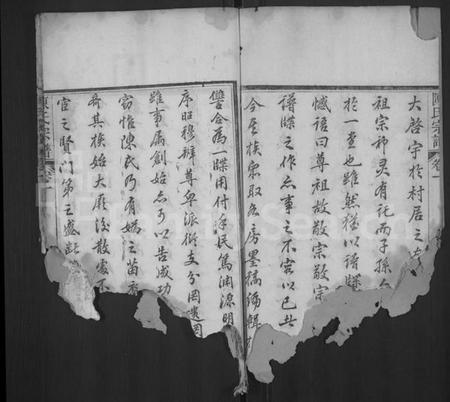 陳氏宗譜 卷一
大啓宇於村居之
祖宗神灵有託而子孫
於一堂也雖然猶以譜牒
憾语曰尊祖故敬宗敬宗
譜牒之作尤事之不容以已共
今至族众取各房墨稿编輯
讐合為一牒用付手民篤淵源明
序昭穆辨尊卑派衍支分罔遺罔
雖事属創始点可以告成功
窃惟陳氏乃有媯之苗裔
奇其族始大厥後散處不
官之賢門第之盛
陳氏宗譜 卷一